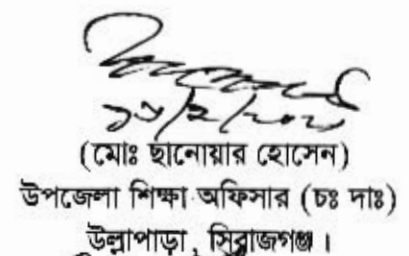 (মোঃ ছানোয়ার হোসেন)
উপজেলা শিক্ষা অফিসার (চঃ দাঃ)
উল্লাপাড়া, সিরাজগঞ্জ।